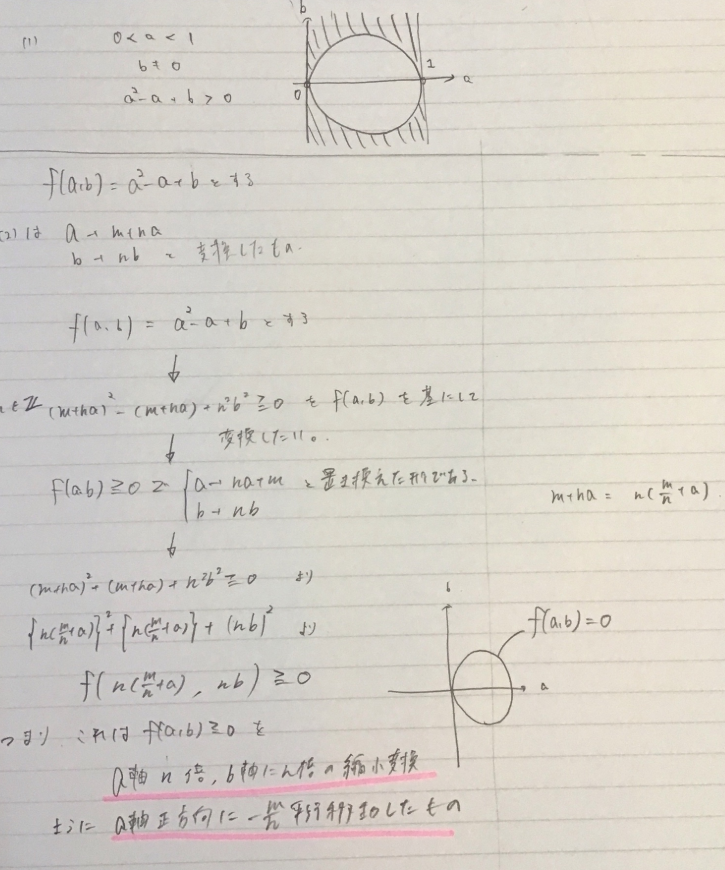 (1) 0<a<1
b≠0
a²-a+b>0
b
0
1
a
f(a,b)=a²-a+bとする
(2)は a→m+na
b→nb と変換したもの.
f(a,b)=a²-a+bとする
↓
n∈Z (m+na)²-(m+na)+n²b²≧0 を f(a,b) を基にして
変換したい。
↓
f(a,b)≧0で { a→na+m
b→nb と置き換えた形である.
m+na = n(m/n+a).
↓
(m+na)²-(m+na)+n²b²≧0 より
{n(m/n+a)}²+{n(m/n+a)}+(nb)² より
f(n(m/n+a), nb)≧0
b
f(a,b)=0
a
つまり これは f(a,b)≧0を
a軸 n倍, b軸にn倍の縮小変換
さらに a軸正方向に -m/n 平行移動したもの